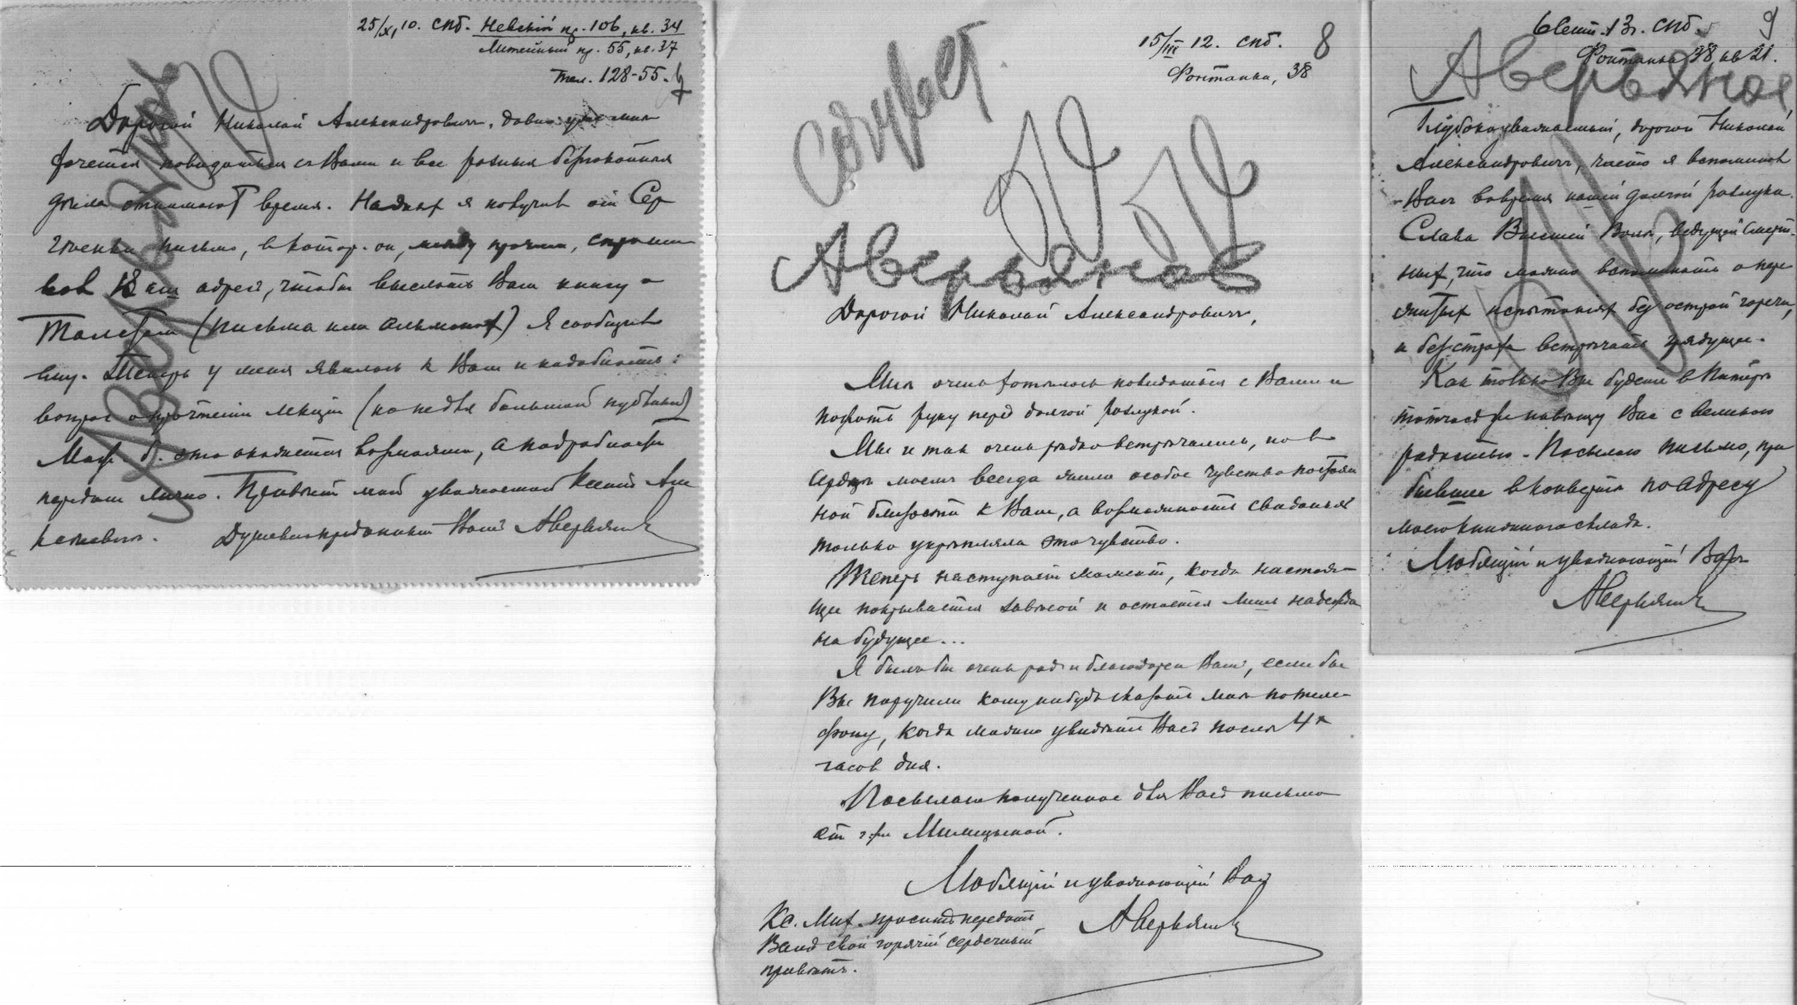 25/XI, 10. Спб. Невскій пр. 106, кв. 34
Литейный пр. 55, кв. 37
Тел. 128-55.
Аверьянов
Дорогой Николай Александровичъ, давно уже мнѣ
хочется повидаться съ Вами и все разныя безпокойныя
дѣла отнимаютъ время. На дняхъ я получилъ отъ Сер
гѣенки письмо, въ котор. он, между прочим, спраши
вал Ваш адресъ, чтобы выслать Вам книгу о
Толстом (письма или альманах) Я сообщилъ
ему. Теперь у меня явилась к Вам и надобность:
вопрос о прочтеніи лекціи (не для большой публики)
Мож. б. это окажется возможным, а подробности
передам лично. Привѣт мой уважаемой Ксеніи Але
ксѣевнѣ. Душевно преданный Вамъ Аверьяновъ
15/III 12. Спб. 8
Фонтанка, 38
Аверьянов
Дорогой Николай Александровичъ,
Мнѣ очень хотѣлось повидаться с Вами и
пожать руку перед долгой разлукой.
Мы и так очень рѣдко встрѣчались, но в
сердцѣ моемъ всегда жило особое чувство постоян
ной близости к Вам, а возможность свиданья
только укрѣпляла это чувство.
Теперь наступает момент, когда настоя-
щее покрывается завѣсой и остается лишь надежда
на будущее...
Я был бы очень рад и благодарен Вам, если бы
Вы поручили кому нибудь сказать мнѣ по теле-
фону, когда можно увидѣть Васъ послѣ 4х
часов дня.
Посылаю полученное для Васъ письмо
от г-жи
Любящій и уважающій Вас
Аверьяновъ
Кс. Мих. просит передать
Вам свой горячій сердечный
привѣтъ.
6 Сент. 13 г. Спб. 9
Фонтанка 38 кв 21.
Аверьянов
Глубокоуважаемый, дорогой Николай
Александровичъ, часто я вспоминал
Васъ во время нашей долгой разлуки.
Слава Высшей Волѣ, ведущей смерт-
ных, что можно вспоминать о пере
житых испытаніях без острой горечи,
и без страха встрѣчать грядущее.
Как только Вы будете в Питерѣ
тотчас же навѣщу Вас с великою
радостью. Посылаю письмо, при
бывшее в конвертѣ по адресу
моего книжного склада.
Любящій и уважающій Васъ
Аверьяновъ